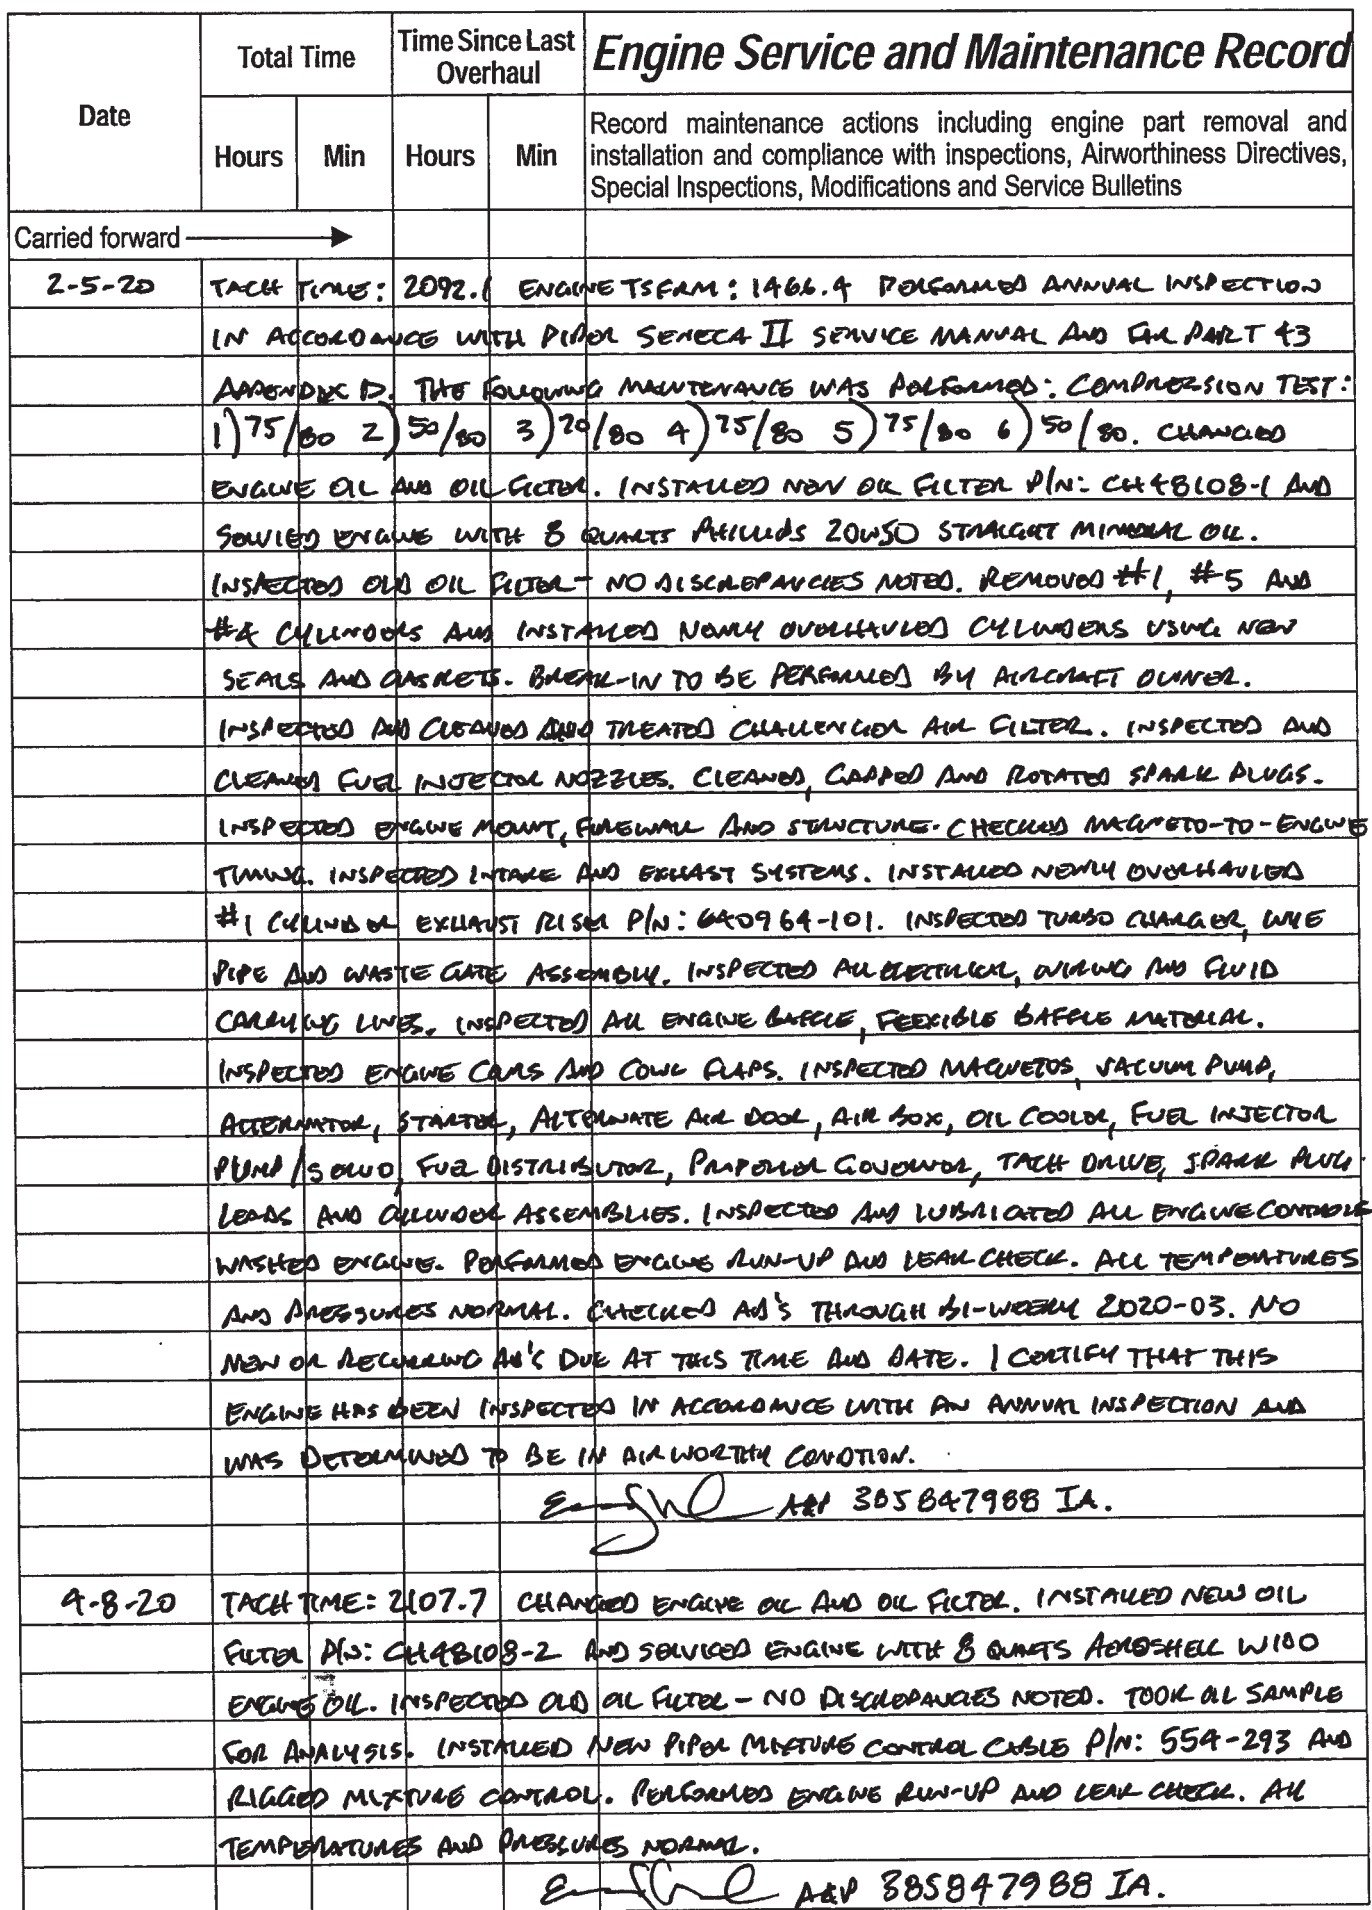 Date
Total Time
Time Since Last Overhaul
Engine Service and Maintenance Record
Hours Min Hours Min
Record maintenance actions including engine part removal and
installation and compliance with inspections, Airworthiness Directives,
Special Inspections, Modifications and Service Bulletins
Carried forward
2-5-20 TACH TIME: 2092.1 ENGINE TSFRM: 1466.4 PERFORMED ANNUAL INSPECTION
IN ACCORDANCE WITH PIPER SENECA II SERVICE MANUAL AND FAR PART 43
APPENDIX D. THE FOLLOWING MAINTENANCE WAS PERFORMED: COMPRESSION TEST:
1) 75/80 2) 50/80 3) 70/80 4) 75/80 5) 75/80 6) 50/80. CHANGED
ENGINE OIL AND OIL FILTER. INSTALLED NEW OIL FILTER P/N: CH48108-1 AND
SERVICED ENGINE WITH 8 QUARTS PHILLIPS 20W50 STRAIGHT MINERAL OIL.
INSPECTED OLD OIL FILTER - NO DISCREPANCIES NOTED. REMOVED #1, #5 AND
CYLINDERS AND INSTALLED NEWLY OVERHAULED CYLINDERS USING NEW
SEALS AND GASKETS. BREAK-IN TO BE PERFORMED BY AIRCRAFT OWNER.
INSPECTED AND CLEANED AND TREATED CHALLENGER AIR FILTER. INSPECTED AND
CLEANED FUEL INJECTOR NOZZLES. CLEANED, GAPPED AND ROTATED SPARK PLUGS.
INSPECTED ENGINE MOUNT, FIREWALL AND STRUCTURE. CHECKED MAGNETO-TO-ENGINE
TIMING. INSPECTED INTAKE AND EXHAST SYSTEMS. INSTALLED NEWLY OVERHAULED
#1 CYLINDER EXHAUST RISER P/N: 640964-101. INSPECTED TURBO CHARGER, WYE
PIPE AND WASTE GATE ASSEMBLY. INSPECTED ALL ELECTRICAL, WIRING AND FLUID
CARRYING LINES. INSPECTED ALL ENGINE BAFFLE, FLEXIBLE BAFFLE MATERIAL.
INSPECTED ENGINE COWLS AND COWL FLAPS. INSPECTED MAGNETOS, VACUUM PUMP,
ALTERNATOR, STARTER, ALTERNATE AIR DOOR, AIR BOX, OIL COOLER, FUEL INJECTOR
PUMP/SERVO, FUEL DISTRIBUTOR, PROPELLER GOVERNOR, TACH DRIVE, SPARK PLUG
LEADS AND CYLINDER ASSEMBLIES. INSPECTED AND LUBRICATED ALL ENGINE CONTROLS
WASHED ENGINE. PERFORMED ENGINE RUN-UP AND LEAK CHECK. ALL TEMPERATURES
AND PRESSURES NORMAL. CHECKED AD'S THROUGH BI-WEEKLY 2020-03. NO
NEW OR RECURRING AD'S DUE AT THIS TIME AND DATE. I CERTIFY THAT THIS
ENGINE HAS BEEN INSPECTED IN ACCORDANCE WITH AN ANNUAL INSPECTION AND
WAS DETERMINED TO BE IN AIRWORTHY CONDTION.
A&P 385847988 IA.
4-8-20 TACH TIME: 2107.7 CHANGED ENGINE OIL AND OIL FILTER. INSTALLED NEW OIL
FILTER P/N: CH48108-2 AND SERVICED ENGINE WITH 8 QUARTS AEROSHELL W100
ENGINE OIL. INSPECTED OLD OIL FILTER - NO DISCREPANCIES NOTED. TOOK OIL SAMPLE
FOR ANALYSIS. INSTALLED NEW PIPER MIXTURE CONTROL CABLE P/N: 554-293 AND
RIGGED MIXTURE CONTROL. PERFORMED ENGINE RUN-UP AND LEAK CHECK. ALL
TEMPERATURES AND PRESSURES NORMAL.
A&P 385847988 IA.